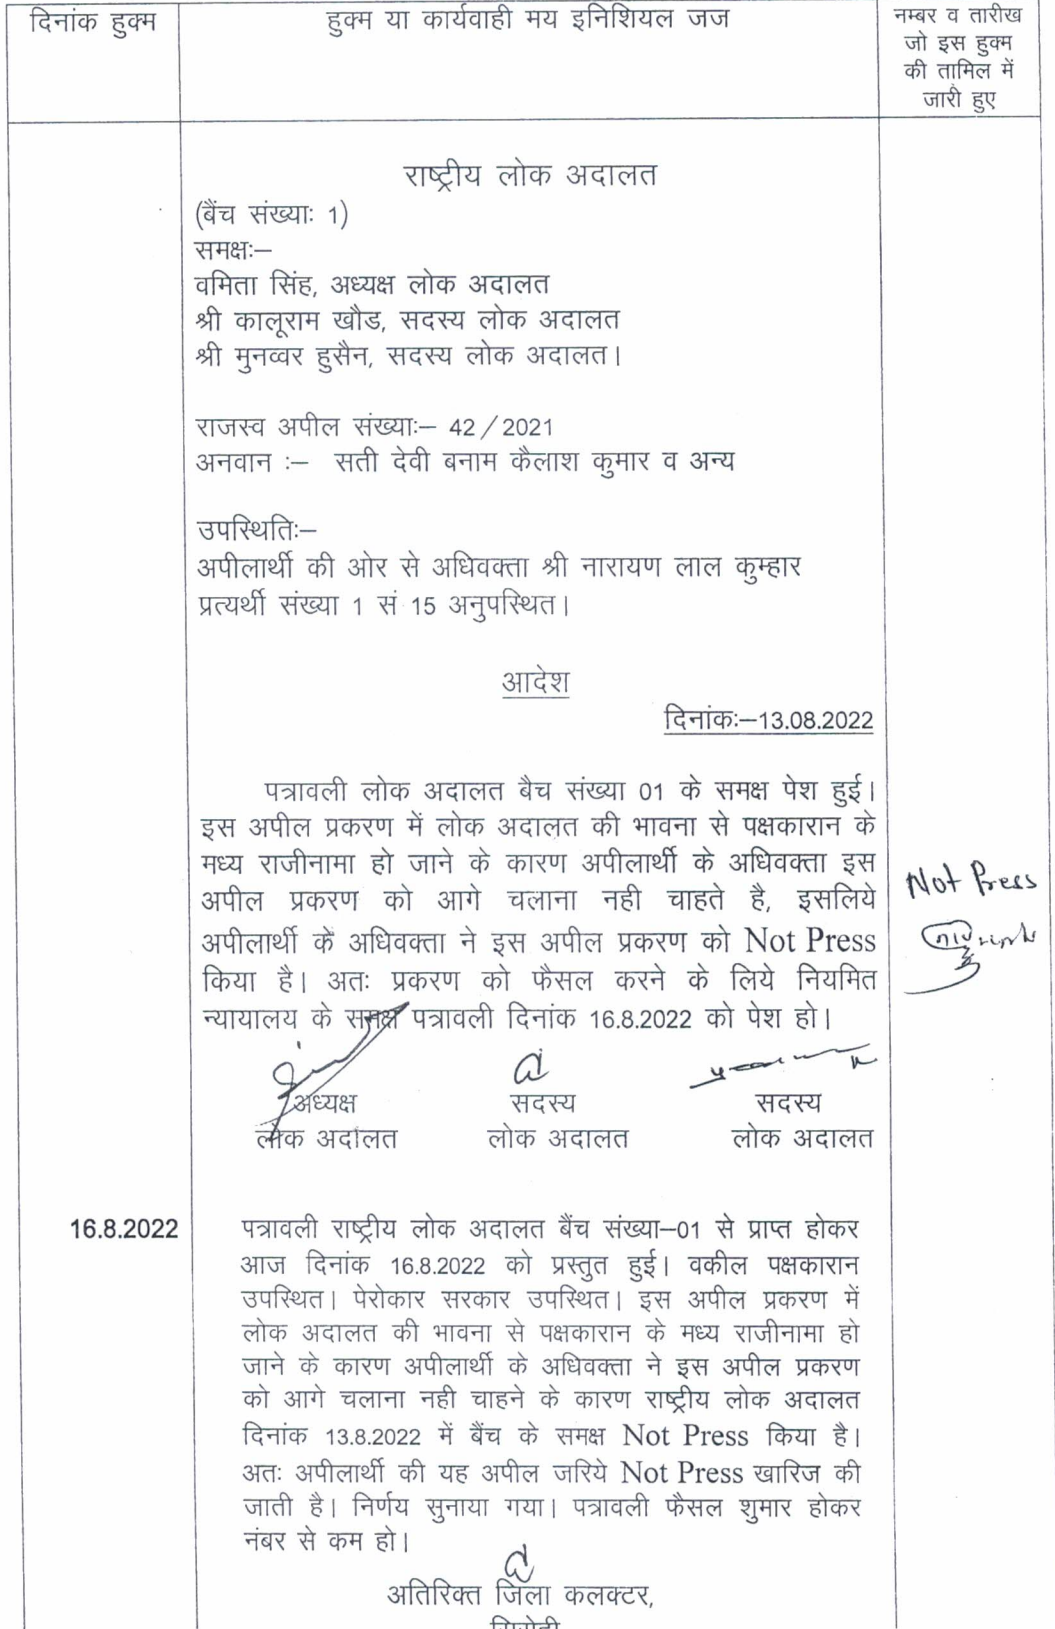 दिनांक हुक्म
हुक्म या कार्यवाही मय इनिशियल जज
नम्बर व तारीख
जो इस हुक्म
की तामिल में
जारी हुए
राष्ट्रीय लोक अदालत
(बैंच संख्याः 1)
समक्षः–
वमिता सिंह, अध्यक्ष लोक अदालत
श्री कालूराम खौड, सदस्य लोक अदालत
श्री मुनव्वर हुसैन, सदस्य लोक अदालत।
राजस्व अपील संख्याः– 42/2021
अनवान :– सती देवी बनाम कैलाश कुमार व अन्य
उपस्थितिः–
अपीलार्थी की ओर से अधिवक्ता श्री नारायण लाल कुम्हार
प्रत्यर्थी संख्या 1 सं 15 अनुपस्थित।
आदेश
दिनांकः–13.08.2022
पत्रावली लोक अदालत बैच संख्या 01 के समक्ष पेश हुई।
इस अपील प्रकरण में लोक अदालत की भावना से पक्षकारान के
मध्य राजीनामा हो जाने के कारण अपीलार्थी के अधिवक्ता इस
अपील प्रकरण को आगे चलाना नही चाहते है, इसलिये
अपीलार्थी के अधिवक्ता ने इस अपील प्रकरण को Not Press
किया है। अतः प्रकरण को फैसल करने के लिये नियमित
न्यायालय के समक्ष पत्रावली दिनांक 16.8.2022 को पेश हो।
Not Press
अध्यक्ष सदस्य सदस्य
लोक अदालत लोक अदालत लोक अदालत
16.8.2022
पत्रावली राष्ट्रीय लोक अदालत बैंच संख्या–01 से प्राप्त होकर
आज दिनांक 16.8.2022 को प्रस्तुत हुई। वकील पक्षकारान
उपस्थित। पेरोकार सरकार उपस्थित। इस अपील प्रकरण में
लोक अदालत की भावना से पक्षकारान के मध्य राजीनामा हो
जाने के कारण अपीलार्थी के अधिवक्ता ने इस अपील प्रकरण
को आगे चलाना नही चाहने के कारण राष्ट्रीय लोक अदालत
दिनांक 13.8.2022 में बैंच के समक्ष Not Press किया है।
अतः अपीलार्थी की यह अपील जरिये Not Press खारिज की
जाती है। निर्णय सुनाया गया। पत्रावली फैसल शुमार होकर
नंबर से कम हो।
अतिरिक्त जिला कलक्टर,